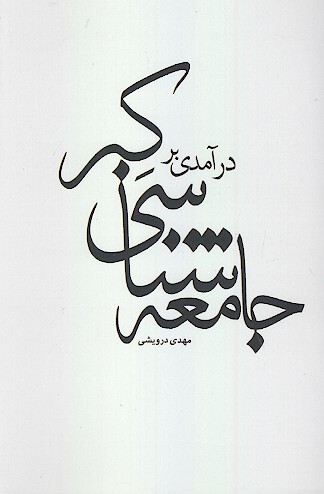 درآمدی بر
جامعه
شناسی
کبر
مهدی درویشی